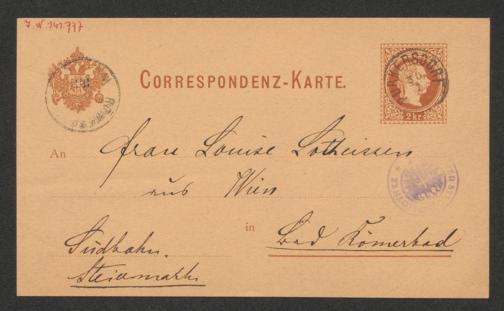 I.N. 141.797
CORRESPONDENZ-KARTE.
2 kr
An
Frau Louise Lotheissen
aus Wien
in
Bad Römerbad
Südbahn.
Steiermark